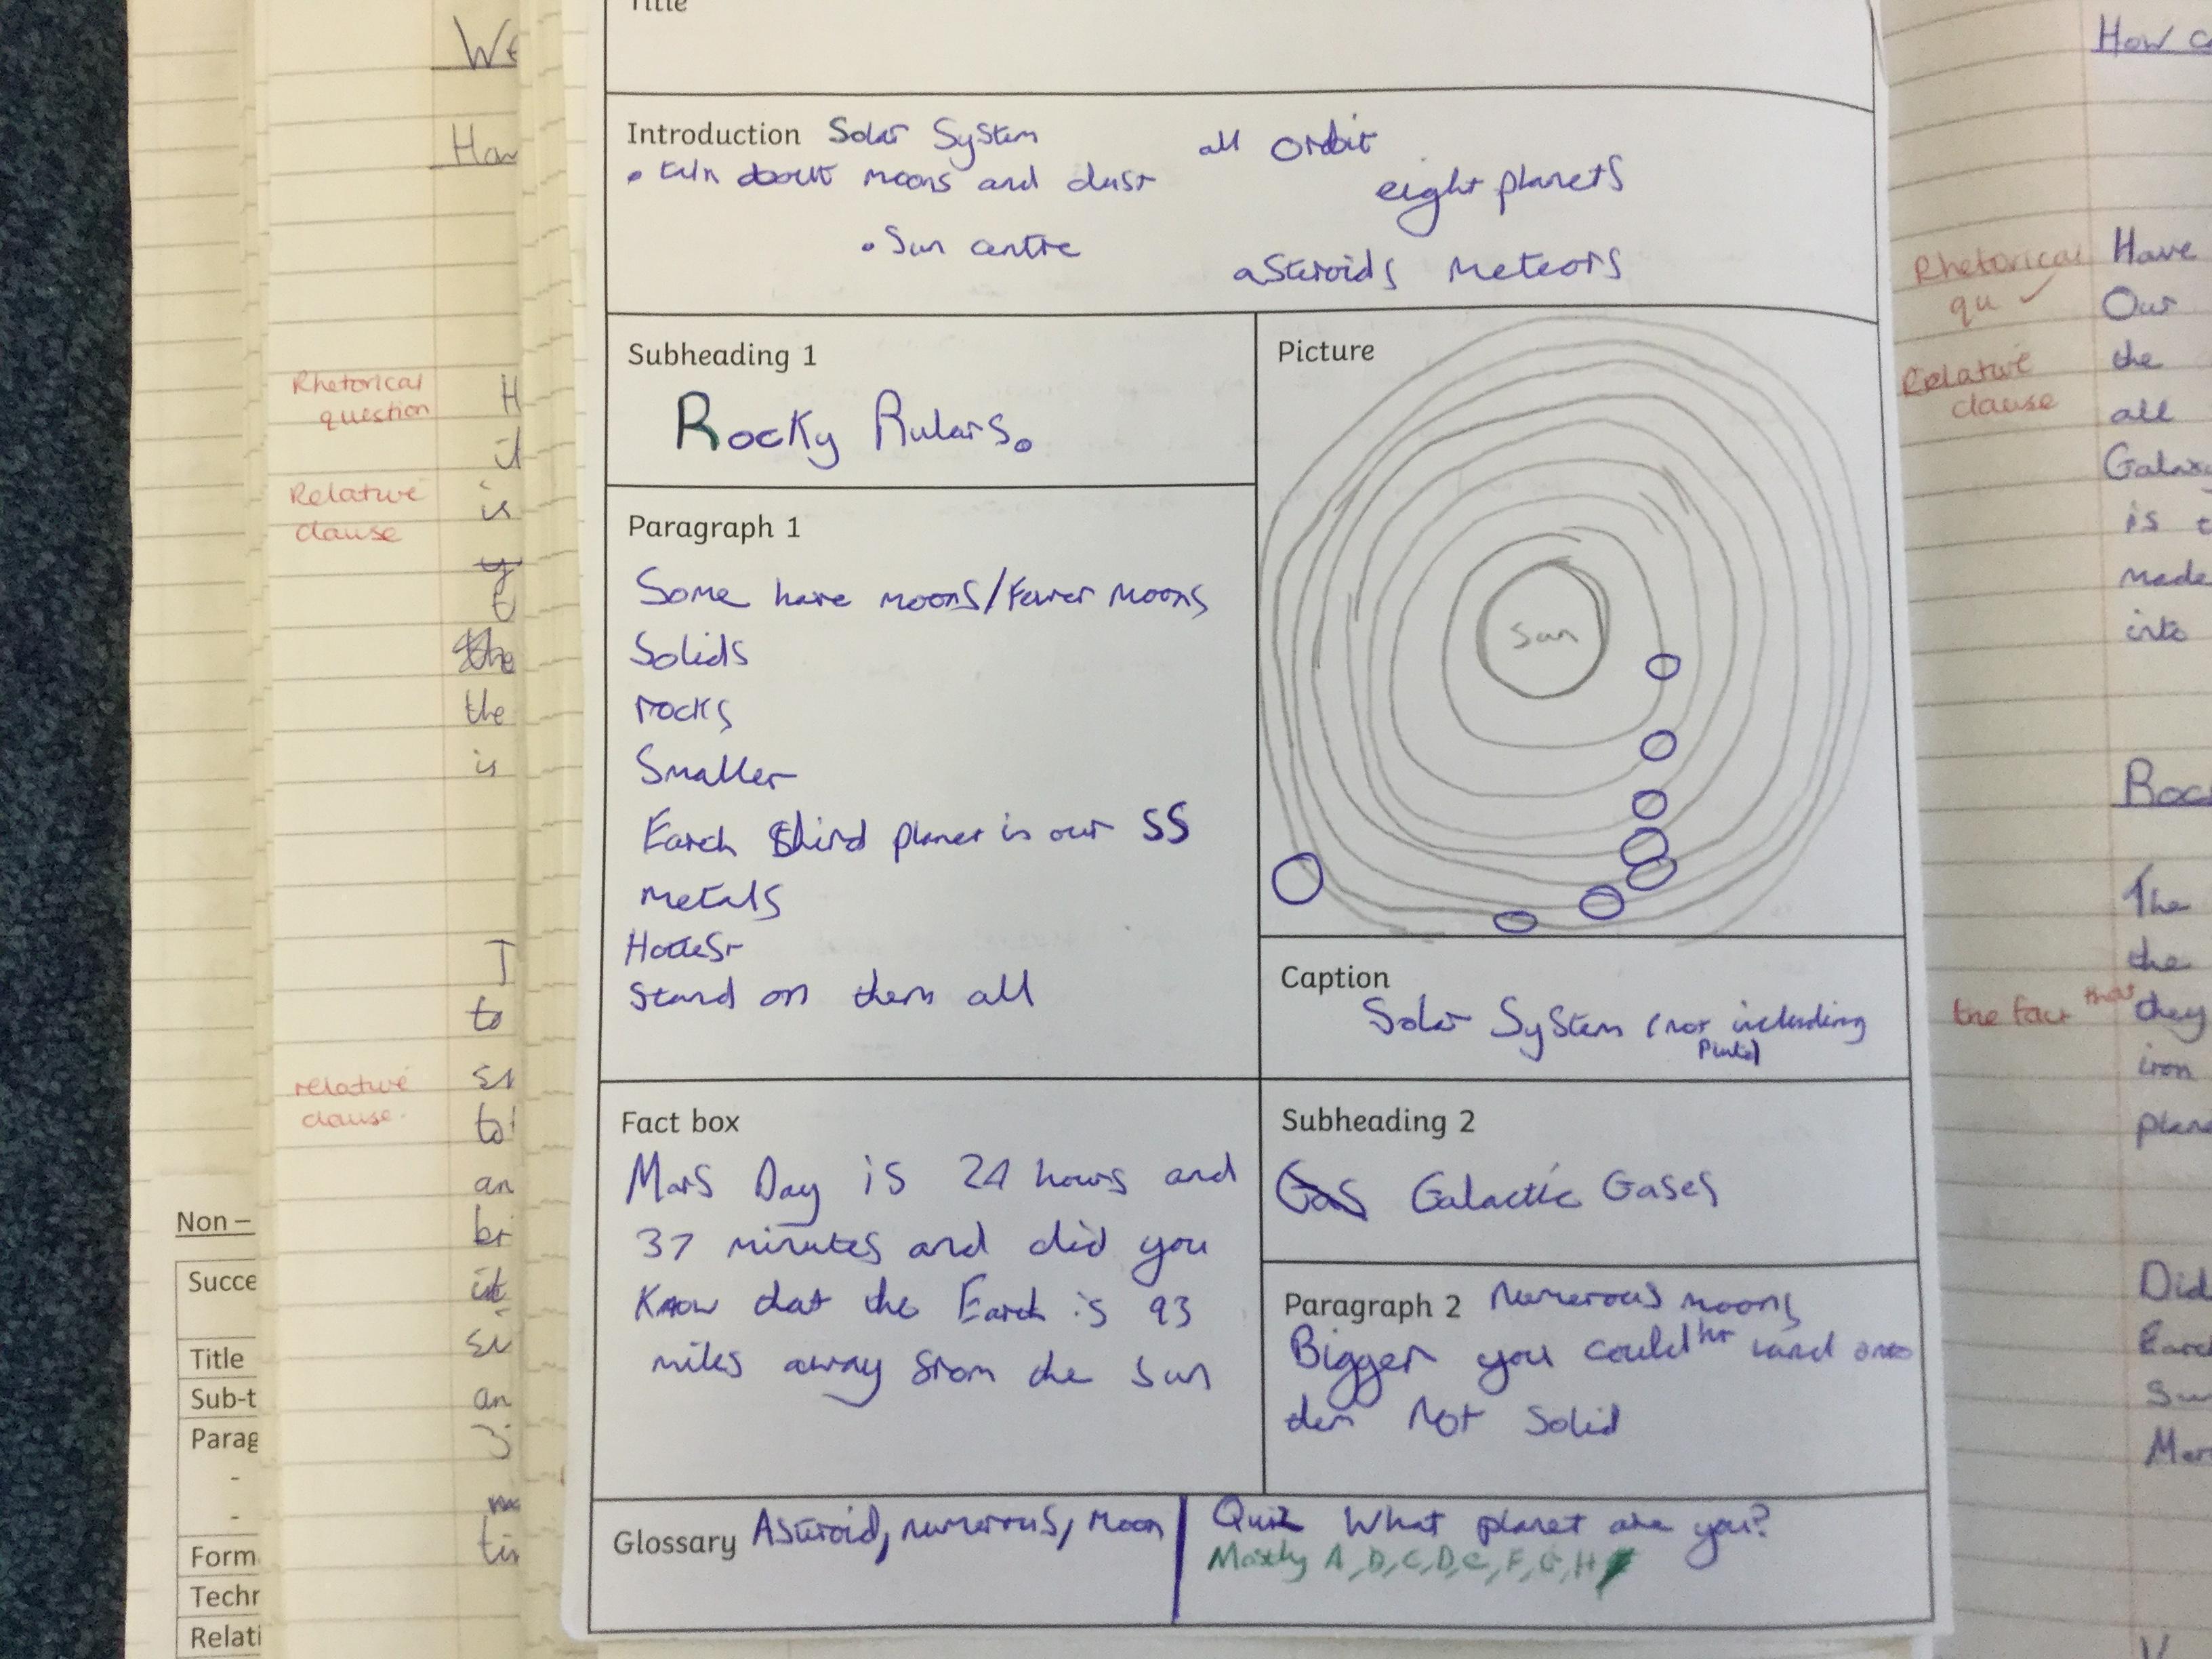 Title
Introduction Solar System
all orbit
• talk about moons and dust
eight planets
• Sun centre
asteroids meteors
Subheading 1
Rocky Rulars.
Picture
Sun
Paragraph 1
Some have moons/fewer moons
Solids
rocks
Smaller
Earth third planet in our SS
Metals
Hottest
Stand on them all
Caption
Solar System (not including
Pluto)
Fact box
Mars Day is 24 hours and
37 minutes and did you
Know that the Earth is 93
miles away from the Sun
Subheading 2
Gas Galactic Gases
Paragraph 2 Numerous moons
Bigger you couldnt land onto
them Not Solid
Glossary Asteroid, numerous, Moon
Quiz What planet are you?
Mostly A, B, C, D, E, F, G, H
We
How
Rhetorical
question
H
it
Relative
clause
is
the
the
is
I
to
relative
clause.
to
an
it
an
Non –
Succe
Title
Sub-t
Parag
-
-
Form
Techr
Relati
How c
Rhetorical
qu ✓
Have
Our
Relative
clause
the
all
Galaxy
is t
made
into
Roc
The
the
the fact that
they
iron
plane
Did
Eart
Su
Mar